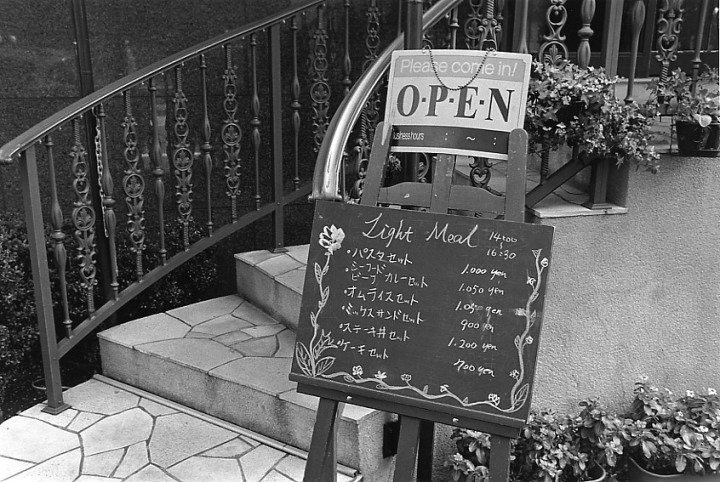 Please come in!
O·P·E·N
Business hours : ~ :
Light Meal 14:00
~
16:30
・パスタセット 1.000 yen
・シーフード
ビーフ カレーセット 1.050 yen
・オムライスセット 1.050 yen
・ミックスサンドセット 900 yen
・ステーキ丼セット 1.200 yen
・ケーキセット 700 yen